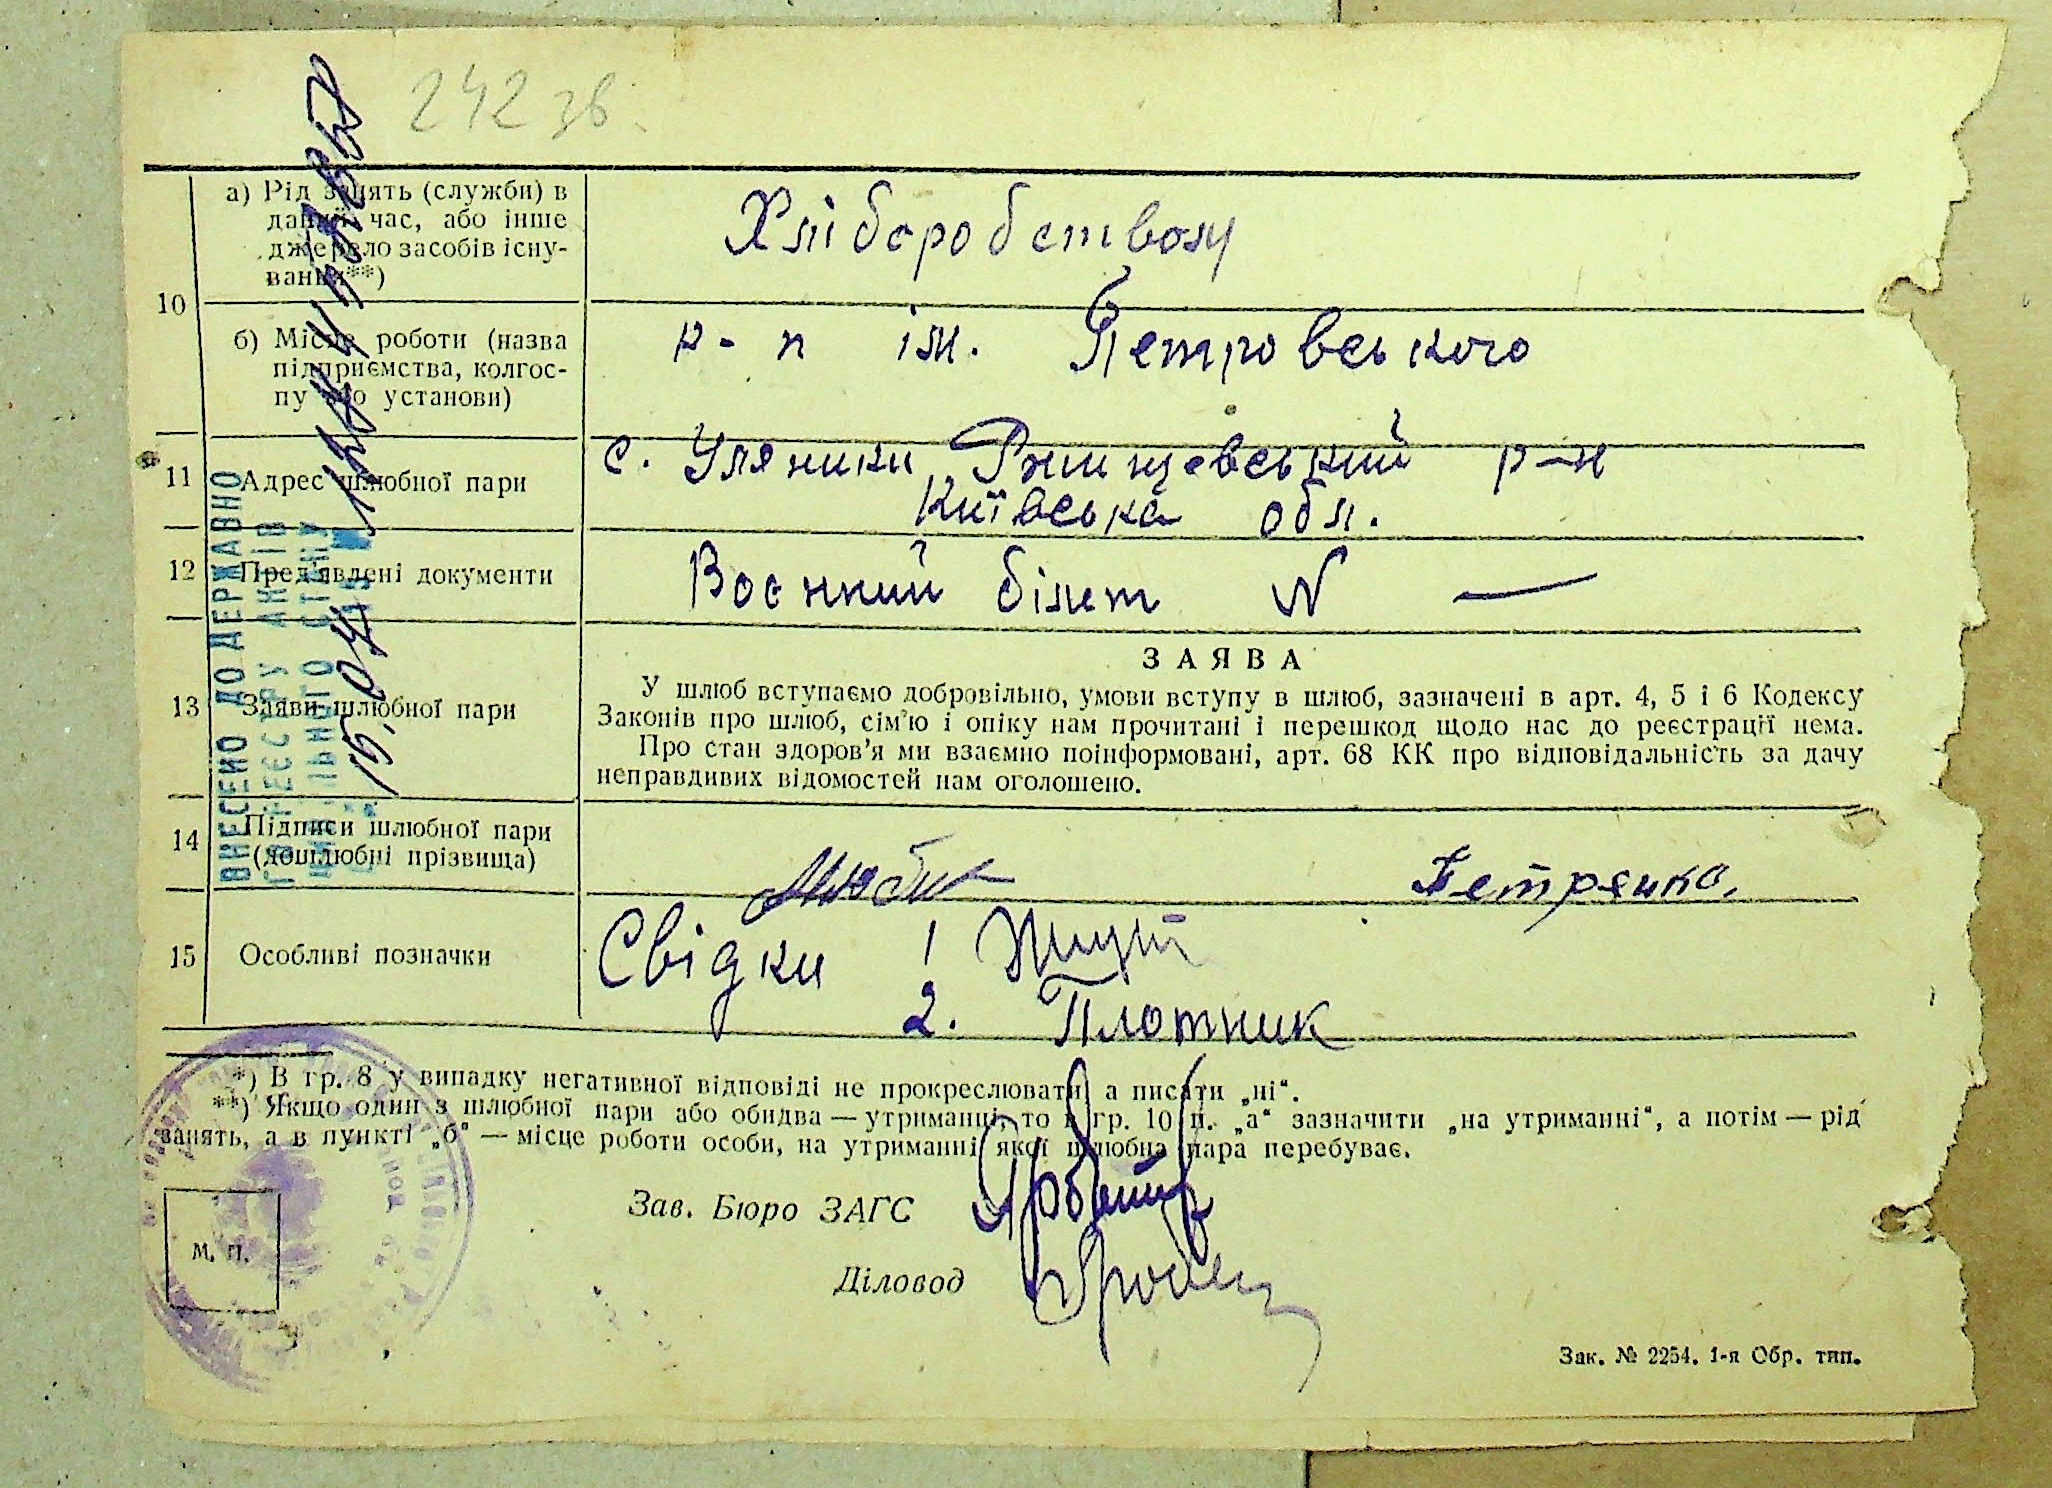 242 зв.
10
а) Рід занять (служби) в
даний час, або інше
джерело засобів існу-
вання**)
Хліборобством
б) Місце роботи (назва
підприємства, колгос-
пу або установи)
к-п ім. Петровського
11
Адрес шлюбної пари
с. Уляники Ржищевський р-н
Київська обл.
12
Пред'явлені документи
Воєнний білет № —
13
Заяви шлюбної пари
ЗАЯВА
У шлюб вступаємо добровільно, умови вступу в шлюб, зазначені в арт. 4, 5 і 6 Кодексу
Законів про шлюб, сім'ю і опіку нам прочитані і перешкод щодо нас до реєстрації нема.
Про стан здоров'я ми взаємно поінформовані, арт. 68 КК про відповідальність за дачу
неправдивих відомостей нам оголошено.
14
Підписи шлюбної пари
(дошлюбні прізвища)
Петренко
15
Особливі позначки
Свідки 1
2. Плотник
*) В гр. 8 у випадку негативної відповіді не прокреслювати, а писати „ні“.
**) Якщо один з шлюбної пари або обидва — утриманці, то в гр. 10 п. „а“ зазначити „на утриманні“, а потім — рід
занять, а в пункті „б“ — місце роботи особи, на утриманні якої шлюбна пара перебуває.
Зав. Бюро ЗАГС
Діловод
М. П.
Зак. № 2254. 1-я Обр. тип.
ВНЕСЕНО ДО ДЕРЖАВНО
ГО РЕЄСТРУ АКТІВ
ЦИВІЛЬНОГО СТАНУ